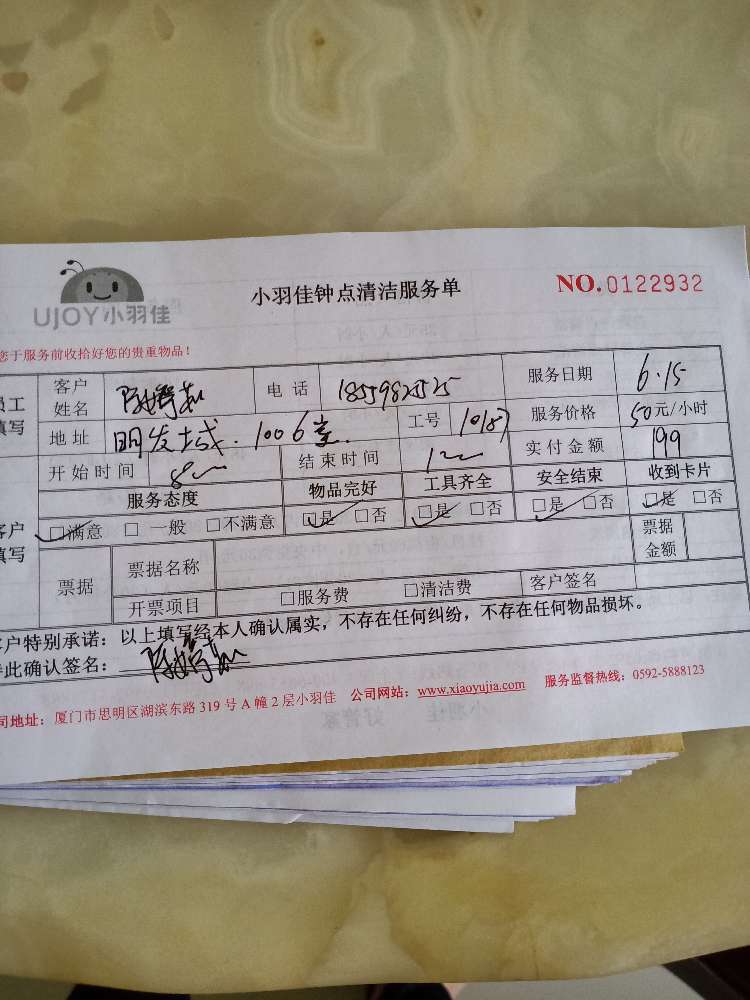 UJOY小羽佳
小羽佳钟点清洁服务单
NO.0122932
您于服务前收拾好您的贵重物品！
员工
填写
客户
姓名
电话 18559822525
服务日期 6.15
地址 明发城.1006室
工号 10187
服务价格 50元/小时
开始时间 8
结束时间 12
实付金额 199
服务态度 物品完好 工具齐全 安全结束 收到卡片
□满意 □ 一般 □不满意 □是 □否 □是 □否 □是 □否 □是 □否
客户
填写
票据
票据名称
票据
金额
开票项目 □服务费 □清洁费 客户签名
客户特别承诺：以上填写经本人确认属实，不存在任何纠纷，不存在任何物品损坏。
此确认签名：
司地址：厦门市思明区湖滨东路 319 号 A 幢 2 层小羽佳 公司网站：www.xiaoyujia.com 服务监督热线：0592-5888123